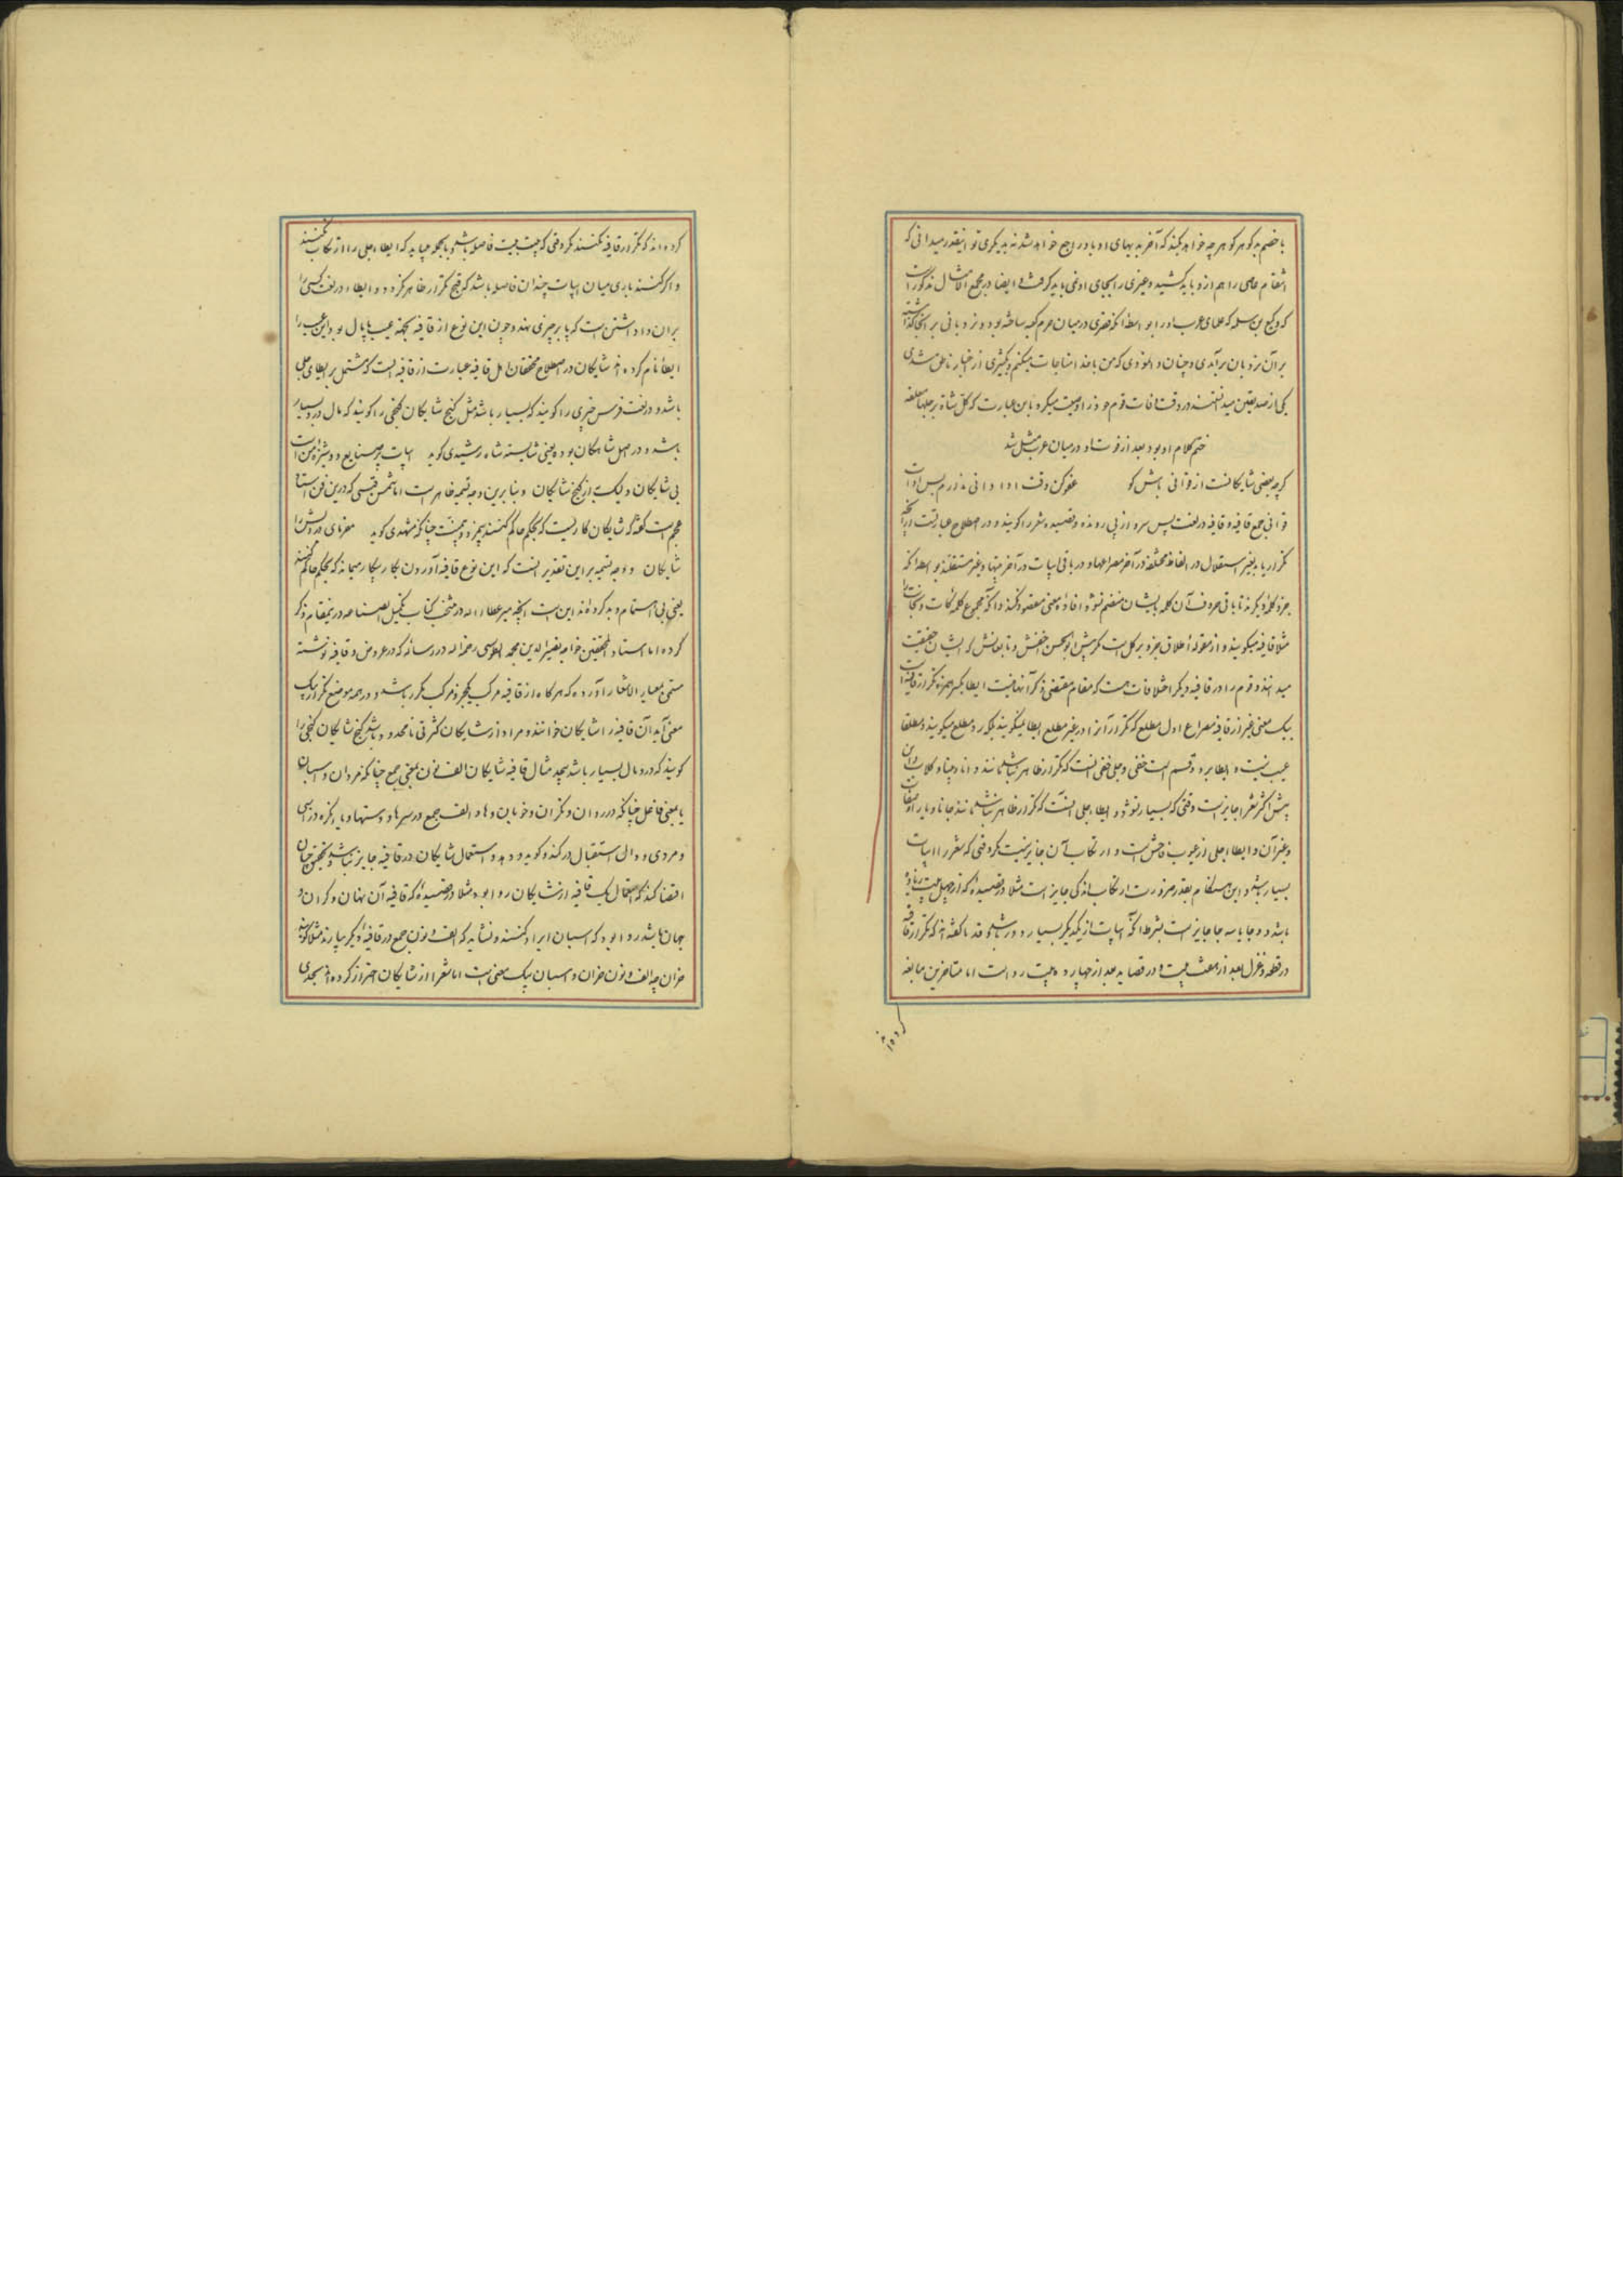 با خصم بد کو هر کو هر چه خواهد بکند که آخر بدیهای او باو راجع خواهد شد نه بدیگری تو اینقدر میدانی که
انتقام عاصی را هم ازو باید کشید و غیری را بجای او نمی باید گرفت و ایضا در مجمع الامثال مذکور است
که وکیع بن سلمه که علمای عرب اورا بو
بر آن نردبان برآمدی و چنان وا نمودی که من با خدا مناجات میکنم و بیشتری از اخبار ناطق شدی
یکی از صدیقین میدانستند در وقت وفات قوم خود را وصیت میکرد باین عبارت که کل شاة برجلها معلقه
ختم کلام او بود بعد از فوت او در میان عرب مثل شد
کرچه بعضی شایکانست از قوافی باش کو عفو کن وقت ادا دانی ندارم بس ادات
قوافی جمع قافیه و قافیه در لغت پس سر و از پی رونده و قصیده شعر را کویند و در اصطلاح عبارتست از آنچه
تکرار یابد بغیر استقلال در الفاظ مختلفه در آخر مصراعها و در باقی ابیات در آخر بیتها و غیر مستقلند
جزو کلمه دیگر نه تا باقی حروف آن کلمه بایشان منضم نشود افاده معنی مقصود نکند و آنکه مجموع کلمه نکات و نجات را
مثلا قافیه میکویند و از مقوله اطلاق جزو بر کل است که پیش ابوالحسن اخفش و تابعانش که ایشان حقیقت
میدانند و قوم را در قافیه دیگر اختلافات هست که مقام مقتضی ذکر آنها نیست ایطا بکسر همزه تکرار قافیه است
بیک معنی غیر از قافیه مصراع اول مطلع که تکرار آنرا در غیر مطلع ایطا نمیکویند بلکه رد مطلع میکویند و مطلقا
عیب نیست و ایطا بر دو قسم است خفی و جلی خفی آنست که تکرار ظاهر نباشد مانند دانا و بینا و کلاب و این
پیش اکثر شعرا جایز است وقتی که بسیار نشود و ایطاء جلی آنست که تکرار ظاهر باشد مانند جانا و یارا و صفات
و غیر آن و ایطاء جلی از عیوب فاحش است و ارتکاب آن جایز نیست مکر وقتی که شعر را ابیات
بسیار باشد و این هنکام بقدر ضرورت ارتکاب اندکی جایز است مثلا در قصیده که از چهل بیت زیاده
باشد دو جا یا سه جا جایز است بشرط آنکه ابیات از یکدیگر بسیار دور باشد و قدما کفته اند که تکرار قافیه
در قطعه و غزل بعد از هفت بیت و در قصاید بعد از چهارده بیت رواست اما متاخرین مبالغه
کرده اند
کرده اند که تکرار قافیه نکنند مکر وقتی که بیست بیت فاصله باشد و بالجمله میباید که ایطاء جلی را ارتکاب نکنند
و اگر کنند باری میان ابیات چندان فاصله باشد که قبح تکرار ظاهر نکردد و ایطاء در لغت کسی را
بر آن داشتن است که پا بر چیزی نهد و چون این نوع از قافیه بجهة عیب پایمال بود این عیب را
ایطا نام کرده اند شایکان در اصطلاح محققان اهل قافیه عبارت از قافیه ایست که مشتمل بر ایطای جلی
باشد و در لغت فرس چیزی را کویند که بسیار باشد مثل کنج شایکان کنجی را کویند که مال درو بسیار
باشد و در اصل شاهکان بوده یعنی شایسته شاه رشیدی کوید ابیات پر صنایع و دوشیزه من است
بی شایکان و لیک به از کنج شایکان و بنابرین وجه تسمیه ظاهر است اما شمس قیس که درین فن استاد
عجم است کفته که شایکان کاریست که بحکم حاکم کنند بی مزد و منت چنانکه شهیدی کوید مفرمای درویش را
شایکان و وجه تسمیه بر این تقدیر آنست که این نوع قافیه آوردن بکار بیکار میماند که بحکم حاکم کنند
یعنی بی اهتمام و بد کرده اند این است آنچه میر عطاء الله در منتخب کتاب تکمیل الصناعه در ینمقام ذکر
کرده اما استاد المحققین خواجه نصیر الدین محمد الطوسی رحمه الله در رساله که در عروض و قافیه نوشته
مسمی بمعیار الاشعار آورده که هر گاه از قافیه مرکب یکجزو مرکب مکرر باشد و در همه موضع تکرار بیک
معنی آید آن قافیه را شایکان خوانند و مراد از شایکان کثرتی نامحدود باشد و کنج شایکان کنجی را
کویند که درو مال بسیار باشد بیحد مثال قافیه شایکان الف و نون بمعنی جمع چنانکه مردان و اسبان
یا بمعنی فاعل چنانکه در روان و نکران و خوبان و ها و الف جمع در سرها و دستها و یاء نکره در اسبی
و مردی و دال استقبال در کند و کوید و دهد و استعمال شایکان در قافیه جایز نباشد و تحقیق چنان
اقتضا کند که استعمال یک قافیه از شایکان روا بود مثلا در قصیده که قافیه آن نهان و کران و
جهان باشد روا بود که اسبان ایراد کنند و نشاید که الف و نون جمع در قافیه دیگر بیارند مثلا کویند
خران چه الف و نون خران و اسبان بیک معنی است اما شعرا از شایکان احتراز کرده اند